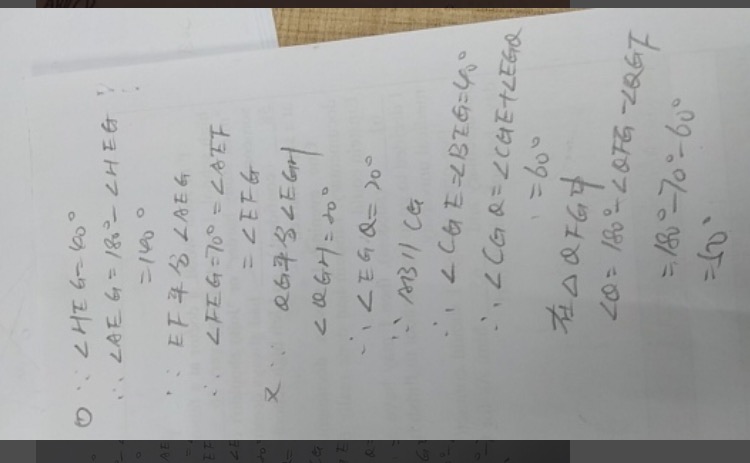 ① ∵ ∠HEG=40°
∴ ∠AEG=180°-∠HEG
=140°
∵ EF平分∠AEG
∴ ∠FEG=70°=∠AEF
=∠EFG
又∵ QG平分∠EGH
∠QGH=20°
∴ ∠EGQ=20°
∵ AB∥CG
∴ ∠CGE=∠BEG=40°
∴ ∠CGQ=∠CGE+∠EGQ
=60°
在△QFG中
∠Q=180°-∠QFG-∠QGF
=180°-70°-60°
=50°